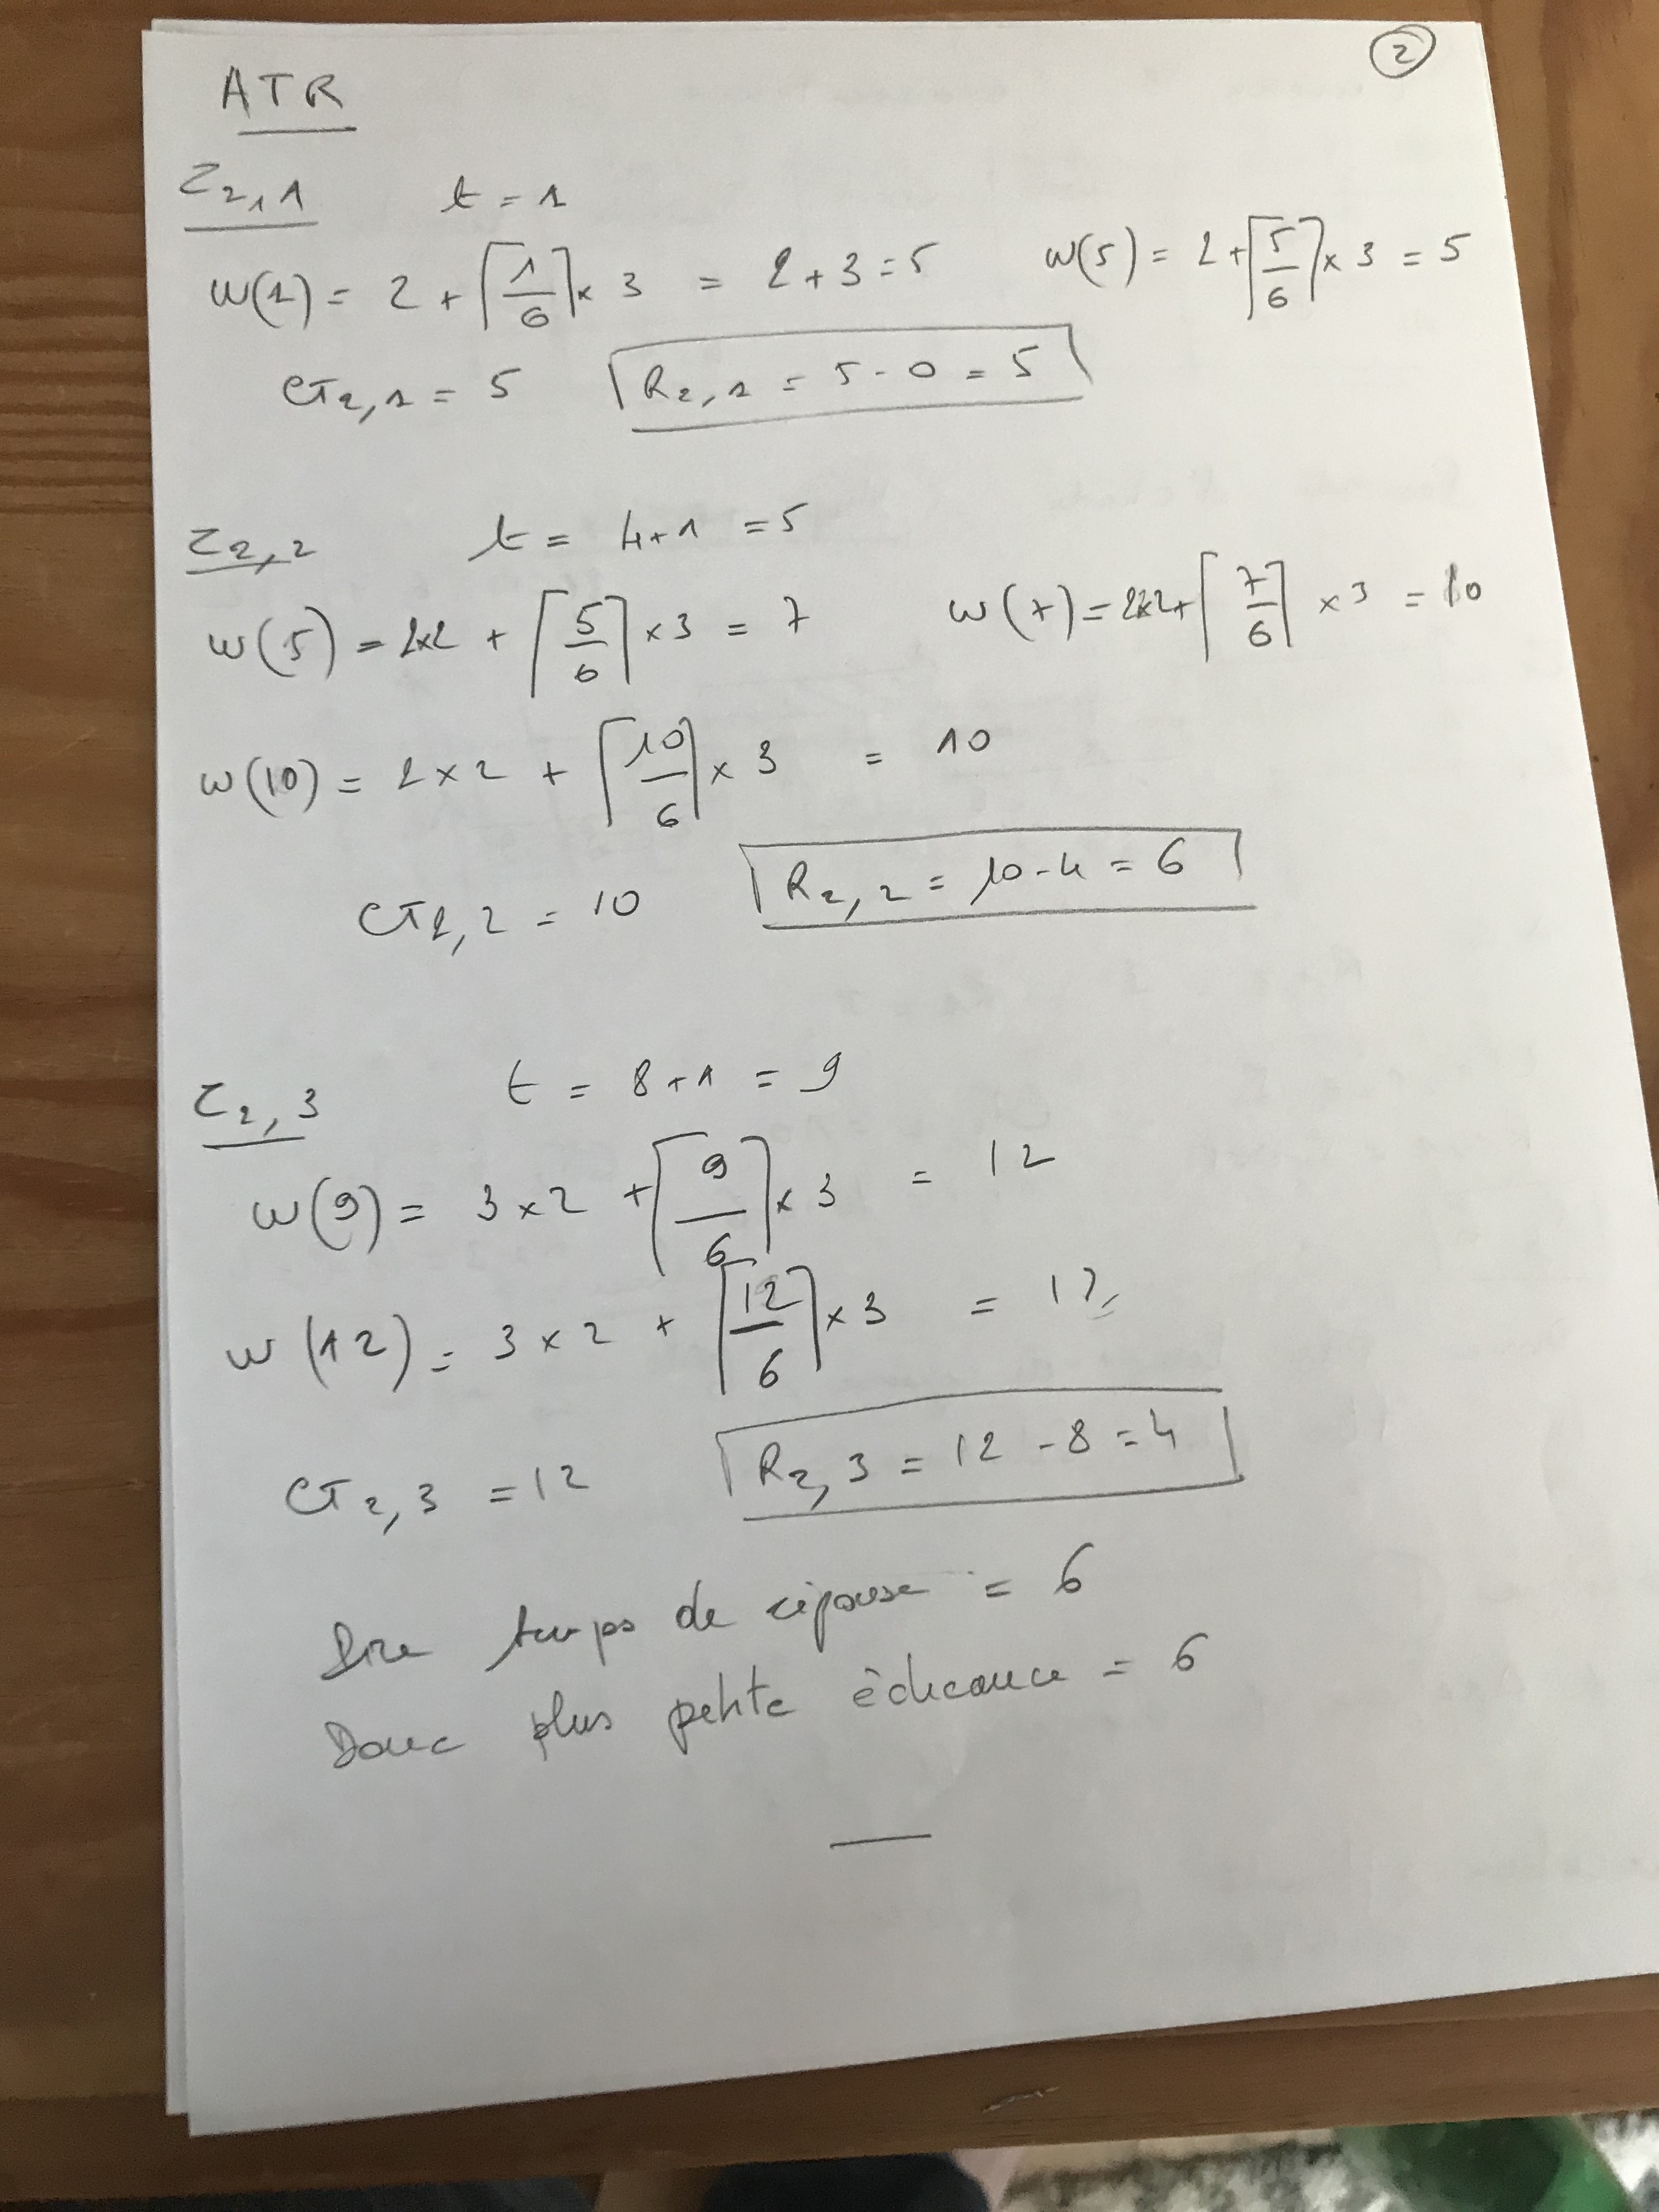 2
ATR
τ2,1 t = 1
w(1) = 2 + ⌈1/6⌉ × 3 = 2 + 3 = 5 w(5) = 2 + ⌈5/6⌉ × 3 = 5
CT2,1 = 5 R2,1 = 5 - 0 = 5
τ2,2 t = 4+1 = 5
w(5) = 2×2 + ⌈5/6⌉ × 3 = 7 w(7) = 2×2 + ⌈7/6⌉ × 3 = 10
w(10) = 2 × 2 + ⌈10/6⌉ × 3 = 10
CT2,2 = 10 R2,2 = 10 - 4 = 6
τ2,3 t = 8+1 = 9
w(9) = 3 × 2 + ⌈9/6⌉ × 3 = 12
w(12) = 3 × 2 + ⌈12/6⌉ × 3 = 12
CT2,3 = 12 R2,3 = 12 - 8 = 4
Pire temps de réponse = 6
Donc plus petite échéance = 6